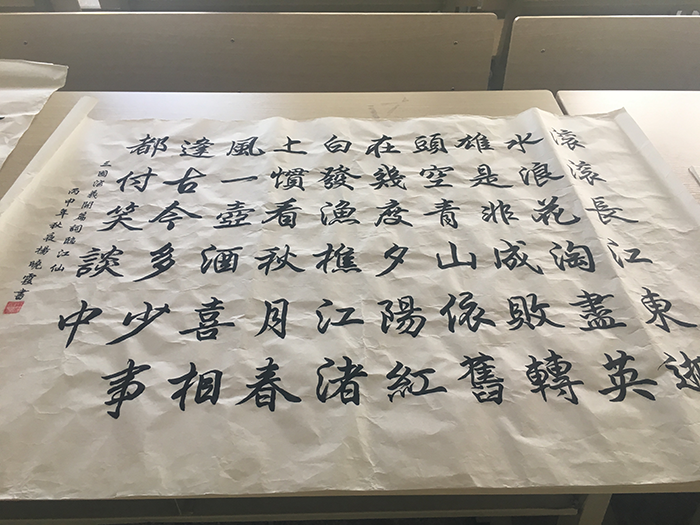 滾滾長江東逝
水浪花淘盡英
雄是非成敗轉
頭空青山依舊
在幾度夕陽紅
白發漁樵江渚
上慣看秋月春
風一壺酒喜相
逢古今多少事
都付笑談中
三國演義開篇詞臨江仙
丙申年秋夜楊曉霞書